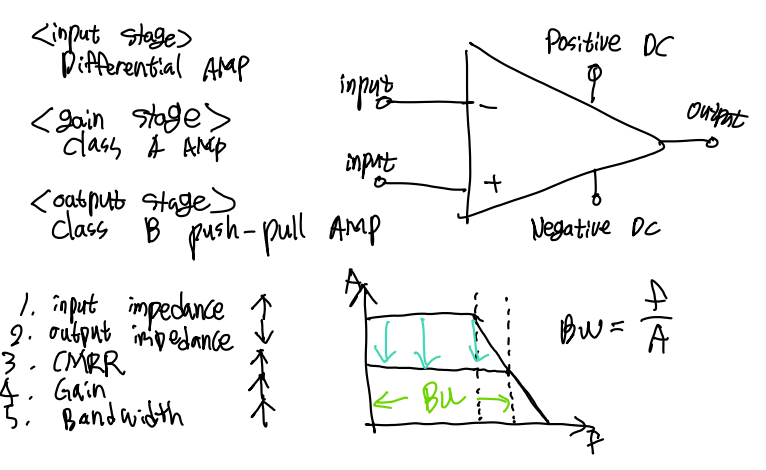 <input stage>
Differential AMP
<gain stage>
class A AMP
<output stage>
class B push-pull AMP
Positive DC
input
−
output
input
+
Negative DC
1. input impedance ↑
2. output impedance ↓
3. CMRR ↑
4. Gain ↑
5. Bandwidth ↑
A
BW
f
BW = f/A